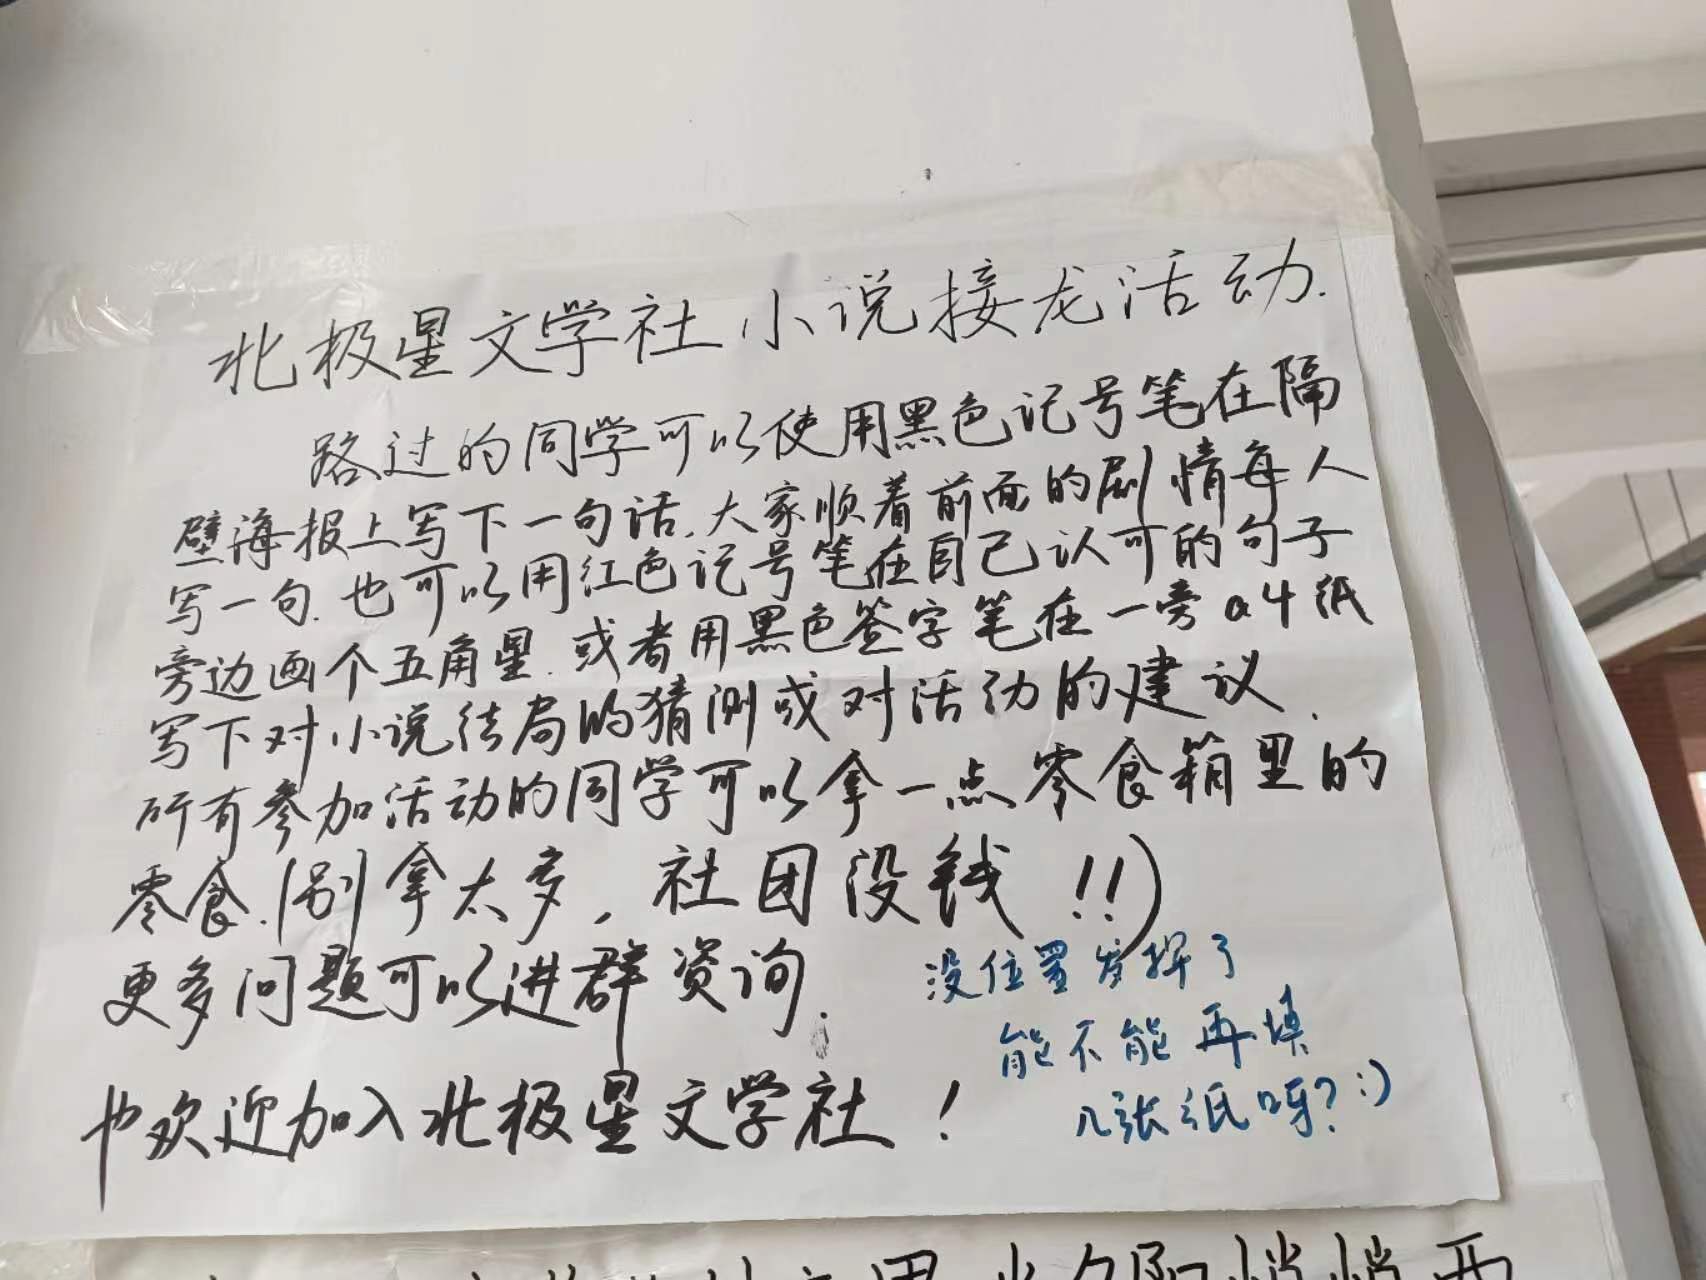 北极星文学社小说接龙活动.
路过的同学可以使用黑色记号笔在隔
壁海报上写下一句话.大家顺着前面的剧情每人
写一句.也可以用红色记号笔在自己认可的句子
旁边画个五角星.或者用黑色签字笔在一旁a4纸
写下对小说结局的猜测或对活动的建议.
所有参加活动的同学可以拿一点零食箱里的
零食.(别拿太多,社团没钱!!)
更多问题可以进群资询.
也欢迎加入北极星文学社!
没位置发挥了
能不能再填
几张纸呀?:)